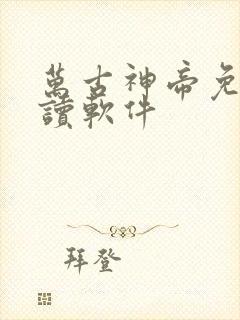 萬古神帝免
讀軟件
拜登